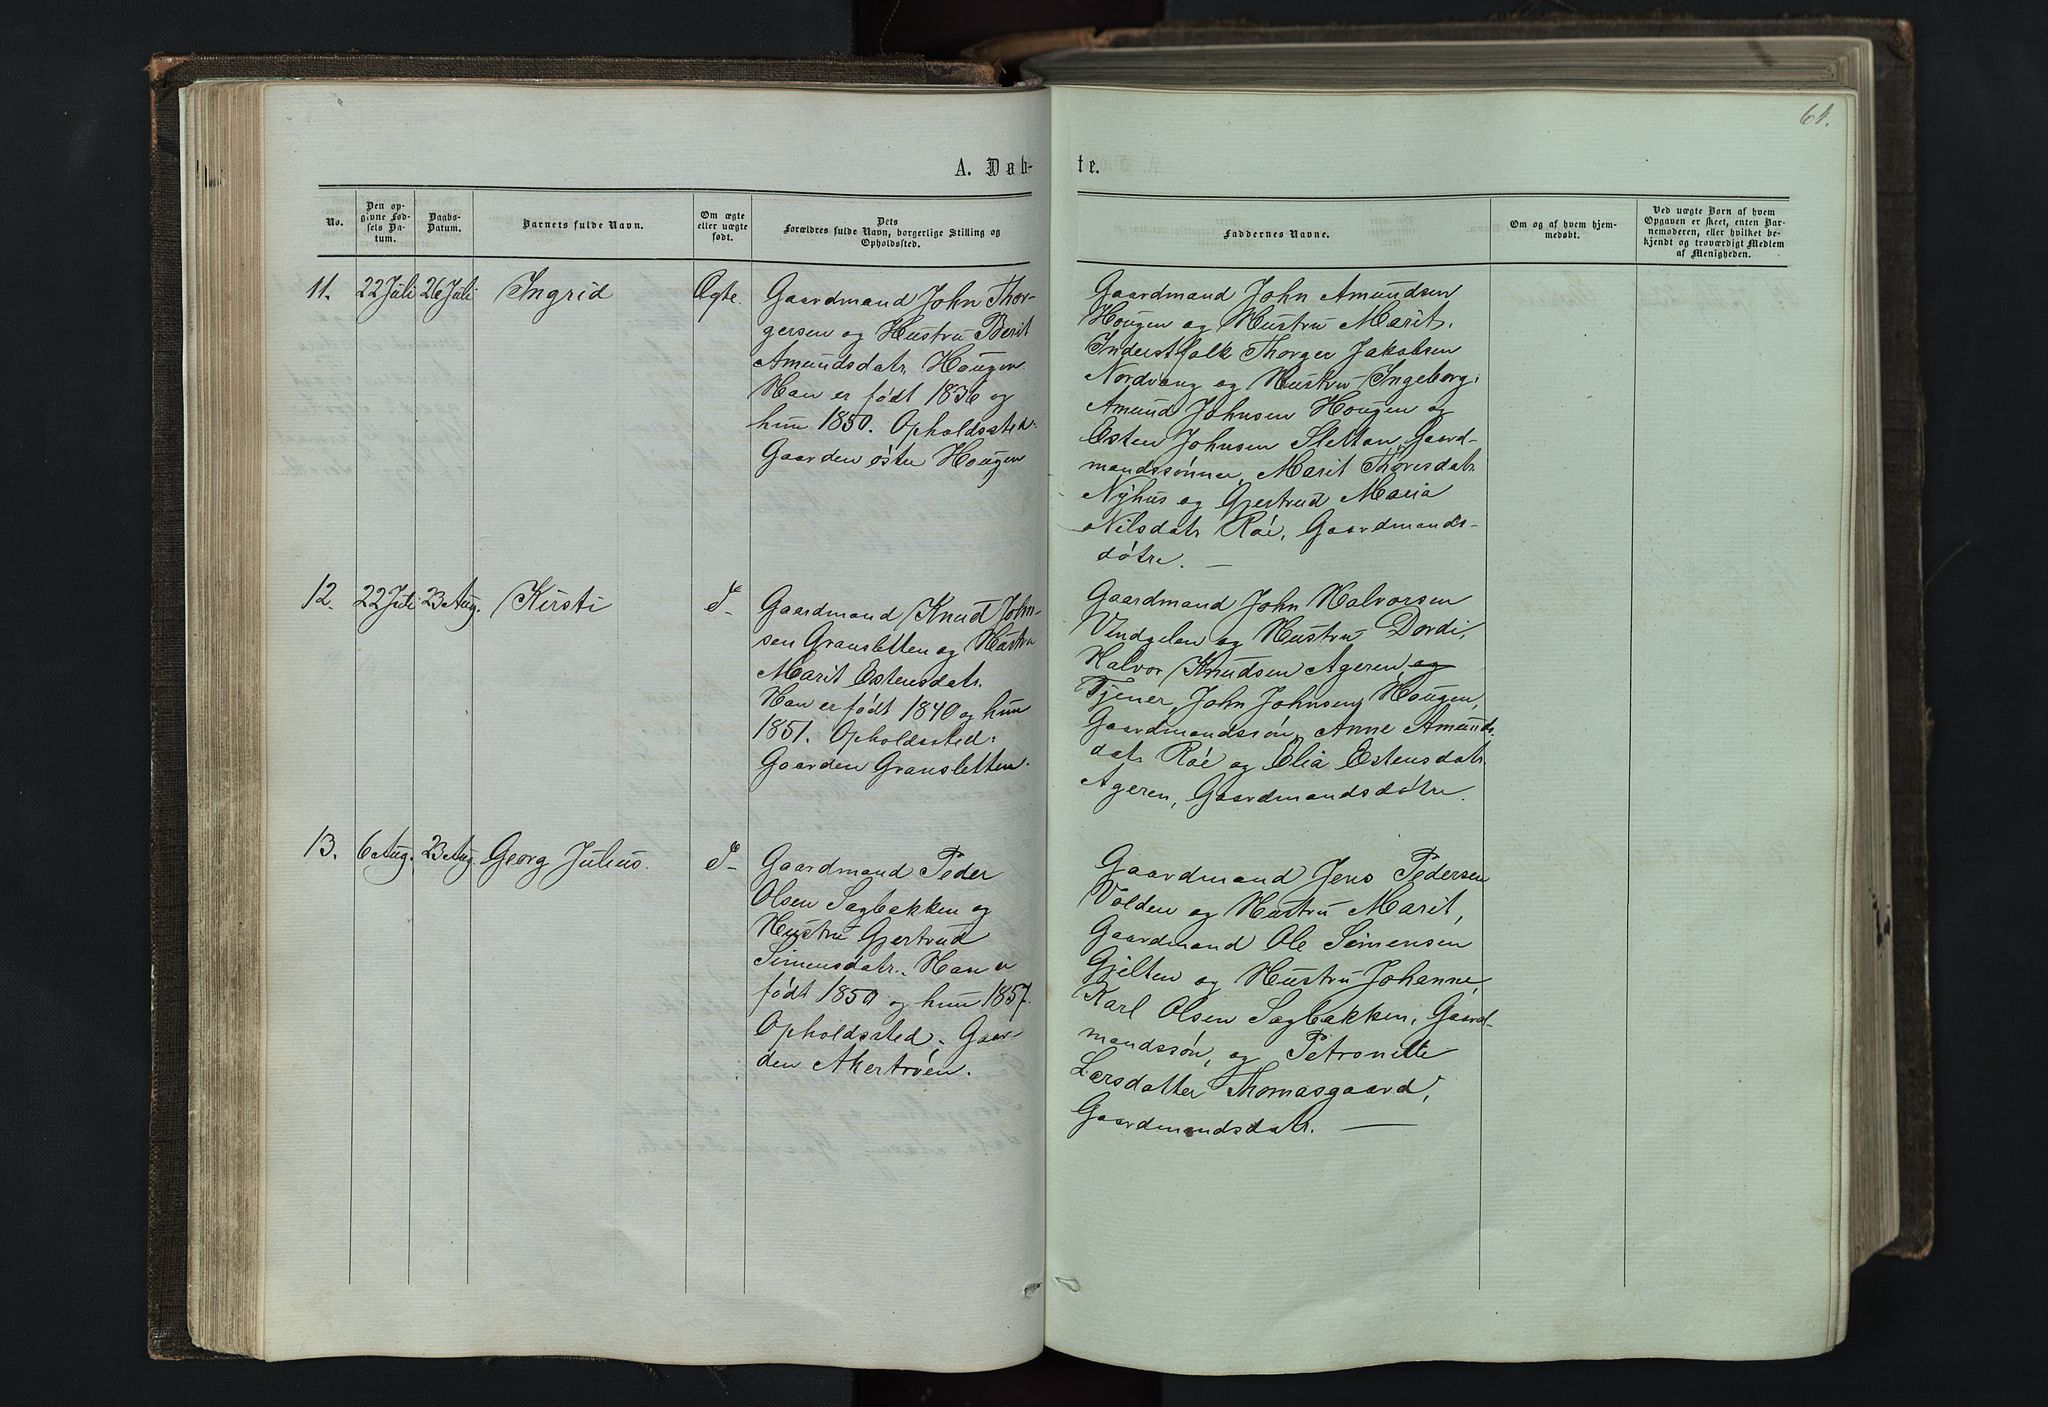 61.
A. Døb-
te.
No.
Den op-
givne Fød-
sels Da-
tum.
Daabs-
Datum.
Barnets fulde Navn.
Om ægte
eller uægte
født.
Dets
Forældres fulde Navn, borgerlige Stilling og
Opholdssted.
Faddernes Navne.
Om og af hvem hjem-
medøbt.
Ved uægte Børn af hvem
Opgaven er skeet, enten Bar-
nemoderen, eller hvilket be-
kjendt og troværdigt Medlem
af Menigheden.
11.
22 Juli
26 Juli
Ingrid
Ægte.
Gaardmand John Thor-
gersen og Hustru Berit
Amundsdatr. Hougen.
Han er født 1836 og
hun 1850. Opholdssted:
Gaarden østre Hougen
Gaardmand John Amundsen
Hougen og Hustru Marit.
Inderstfolk Thorger Jakobsen
Nordvang og Hustru Ingeborg.
Amund Johnsen Hougen og
Esten Johnsen Slettan, Gaard-
mandssønner, Marit Thoresdatr.
Nyhus og Gjertrud Maria
Nilsdatr. Røe, Gaardmands-
døtre. —
12.
22 Juli
23 Aug.
Kirsti
d-
Gaardmand Knud John-
sen Gransletten og Hustru
Marit Estensdatr.
Han er født 1840 og hun
1851. Opholdssted:
Gaarden Gransletten.
Gaardmand John Halvorsen
Vingelen og Hustru Dordi,
Halvor Knudsen Ageren, og
Tjener, John Johnsen Hougen,
Gaardmandssøn, Anne Amunds-
datr. Røe og Elia Estensdatr.
Ageren, Gaardmandsdøtre.
13.
6 Aug.
23 Aug.
Georg Julius.
d-
Gaardmand Peder
Olsen Sagbakken og
Hustru Gjertrud
Simensdatr. Han er
født 1850 og hun 1857.
Opholdssted: Gaar-
den Akertrøen.
Gaardmand Jens Pedersen
Volden og Hustru Marit,
Gaardmand Ole Simensen
Gjelten og Hustru Johanne,
Karl Olsen Sagbakken, Gaard-
mandssøn, og Petronille
Larsdatter Thomasgaard,
Gaardmandsdatr. —